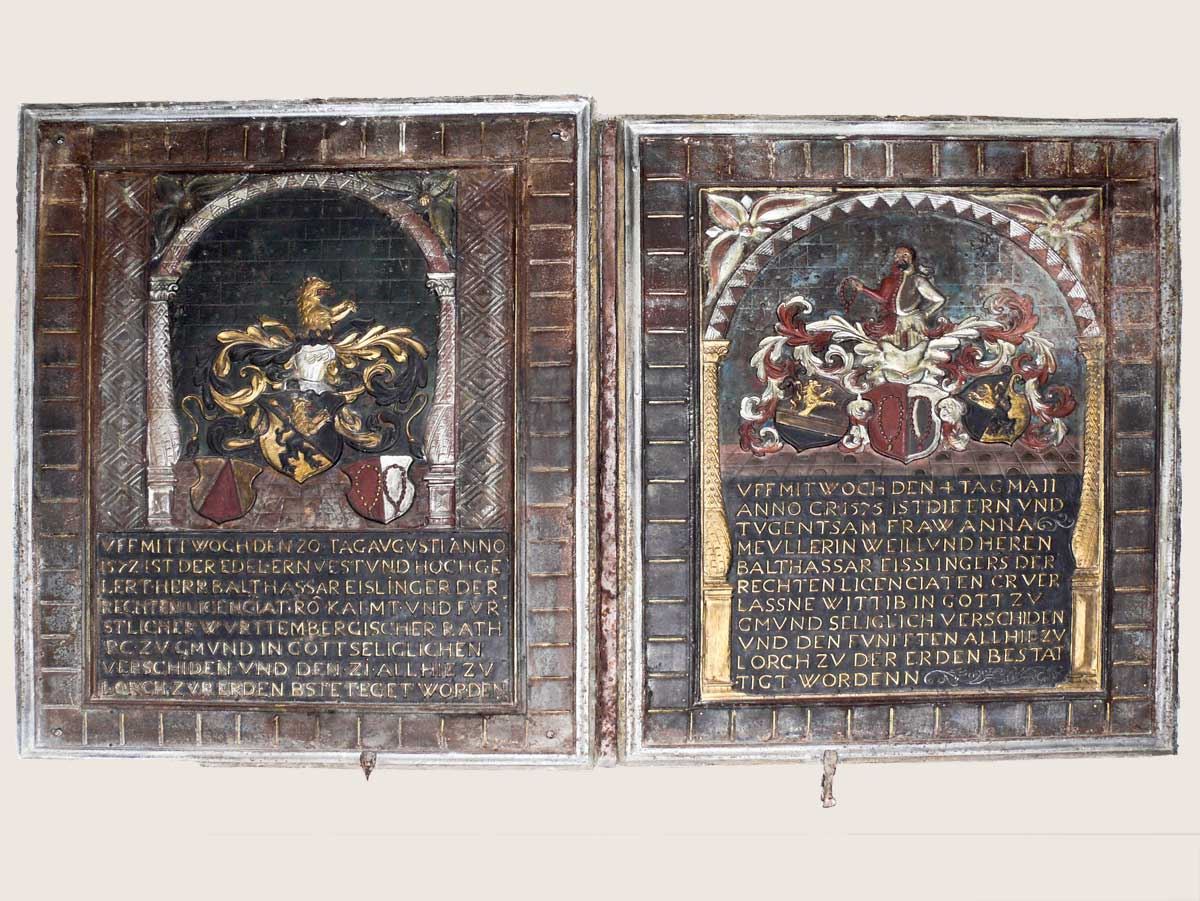 VFFMITTWOCHDEN ZO TAGAVGVSTI ANNO
1572 IST DER EDEL ERNVEST VND HOCHGE
LERT HERR BALTHASSAR EISLINGER DER
RECHTEN LICENCIAT RÖ KAI MT VND FVR
STLICHER WVRTTEMBERGISCHER RATH
PC ZV GMVND IN GOTT SELIGLICHEN
VERSCHIDEN VND DEN ZI ALLHIE ZV
LORCH ZVR ERDEN BSTETEGET WORDEN
VFF MITWOCH DEN 4 TAG MAII
ANNO CR 1575 IST DIE ERN VND
TVGENTSAM FRAW ANNA
MEVLLERIN WEILLVND HEREN
BALTHASSAR EISSLINGERS DER
RECHTEN LICENCIATEN CRVER
LASSNE WITTIB IN GOTT ZV
GMVND SELIGLICH VERSCHIDEN
VND DEN FVNFTEN ALLHIE ZV
LORCH ZV DER ERDEN BESTAT
TIGT WORDENN